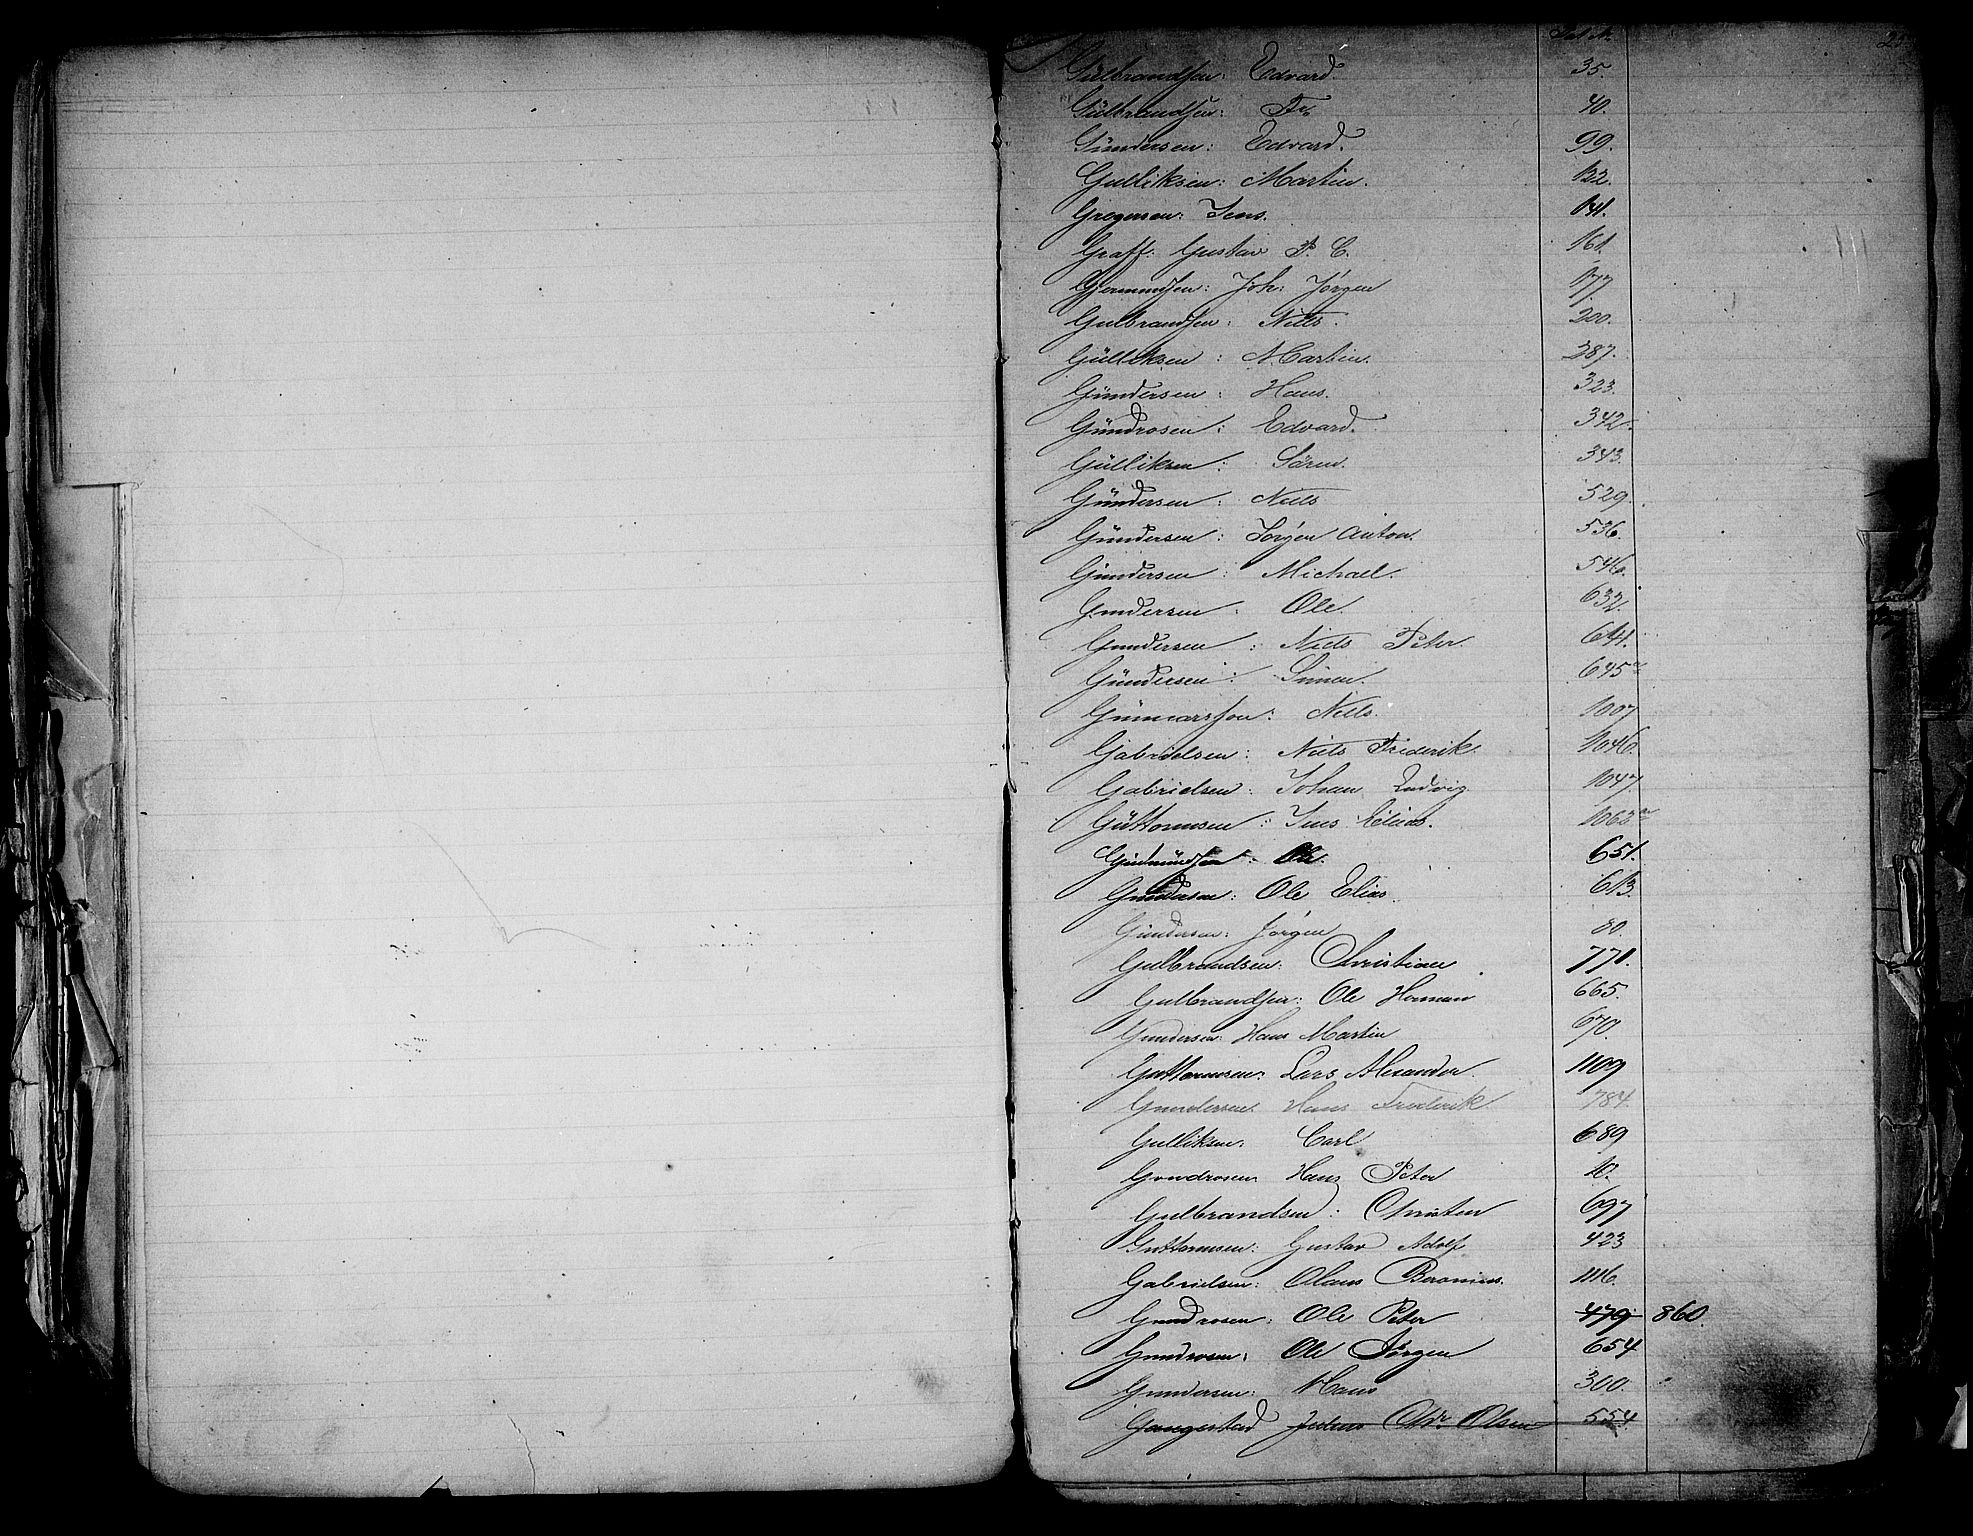 Gülbrandsen: Edvard. 35.
Gülbrandsen: Fr. 40.
Gündersen: Edvard. 99.
Gulliksen: Martin. 132.
Gregersen: Jens. 141.
Graff: Gustav P. C. 161.
Gjermundsen: Joh: Jørgen 177
Gulbrandsen: Niels. 200.
Gülliksen: Martin. 287.
Gündersen: Hans. 323.
Gündrosen: Edvard. 342.
Gülliksen: Sören. 343.
Gündersen: Niels 529.
Gündersen: Jörgen Anton. 536.
Gündersen: Michael. 546.
Gundersen: Ole 632.
Gundersen: Niels Peter. 641.
Gündersen: Simen. 645 a
Günnarsson: Niels. 1007
Gabrielsen: Niels Frederik 1046.
Gabrielsen: Johan Ludvig. 1047.
Güttormsen: Jens Elias. 1062 a
Gudmündsen: Ole. 651.
Gundersen: Ole Elias. 613.
Gundersen: Jørgen 80.
Gulbrandsen: Christian 771.
Gulbrandsen: Ole Herman 665.
Gundersen: Hans Martin 670.
Guttormsen: Lars Alexander. 1109
Gundersen. Hans Frederik 784.
Gulliksen: Carl 689
Gundrosen Hans Peter 10.
Gulbrandsen: Christen 697
Guttormsen: Gustav Adolf 423
Gabrielsen: Olaus Beronius. 1116.
Gundrosen: Ole Peter 479. 860.
Gundrosen: Ole Jörgen 654
Gundersen: Hans 300.
Gangestad Julius Chr Olsen 554